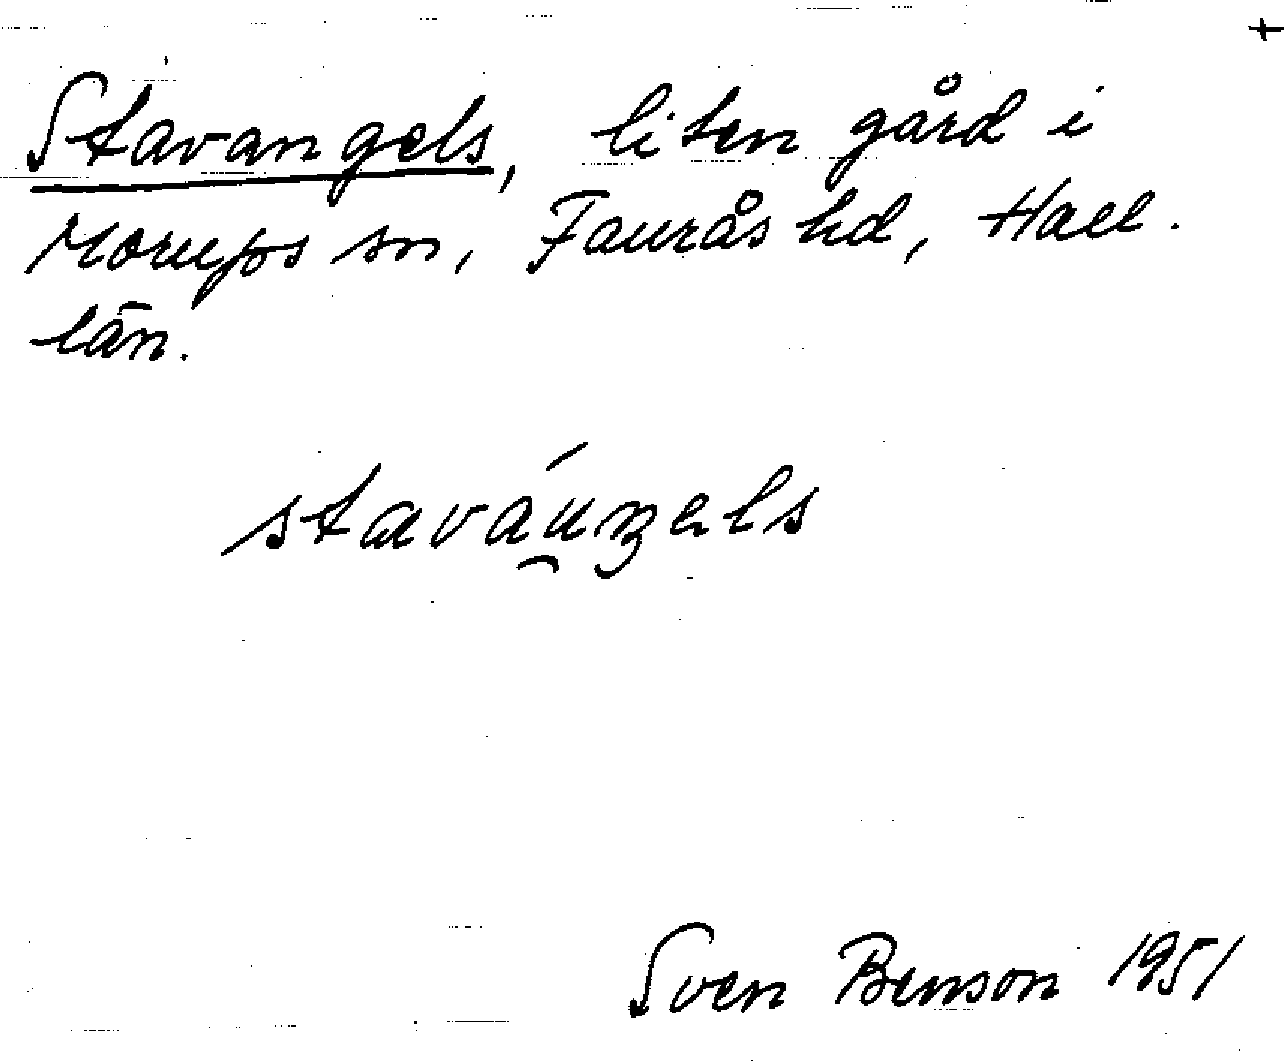 +
Stavangels, liten gård i
Morups sn, Faurås hd, Hall.
län.
staváu̯ŋels
Sven Benson 1951